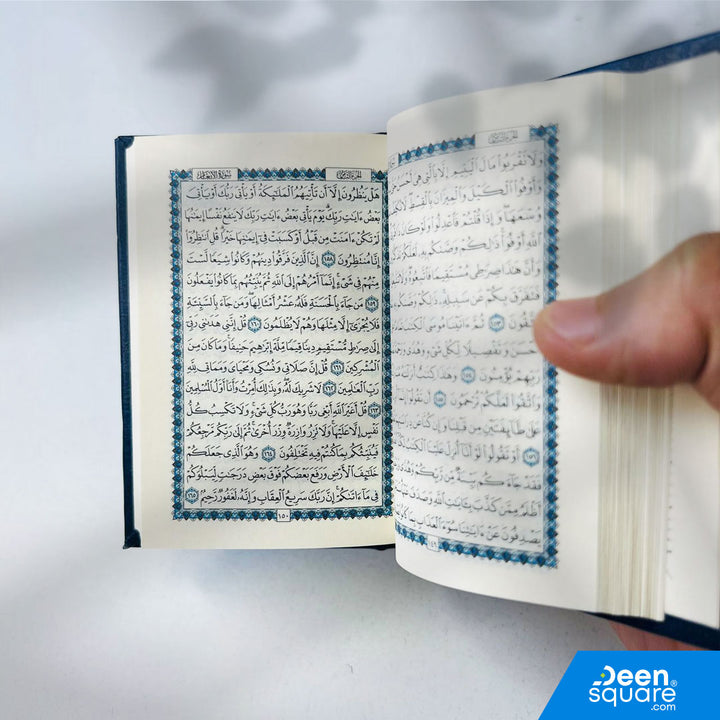 وَلَا تَقْرَبُوا۟ مَالَ ٱلْيَتِيمِ إِلَّا بِٱلَّتِى هِىَ أَحْسَنُ حَتَّىٰ
وَأَوْفُوا۟ ٱلْكَيْلَ وَٱلْمِيزَانَ بِٱلْقِسْطِ
وُسْعَهَا وَإِذَا قُلْتُمْ فَٱعْدِلُوا۟ وَلَوْ كَانَ
ٱللَّهِ أَوْفُوا۟ ذَٰلِكُمْ وَصَّىٰكُم بِهِۦ لَعَلَّكُمْ
وَأَنَّ هَٰذَا صِرَٰطِى مُسْتَقِيمًا فَٱتَّبِعُوهُ
فَتَفَرَّقَ بِكُمْ عَن سَبِيلِهِۦ ذَٰلِكُمْ وَصَّىٰكُم
تَتَّقُونَ ١٥٣ ثُمَّ ءَاتَيْنَا مُوسَى
أَحْسَنَ وَتَفْصِيلًا لِّكُلِّ شَىْءٍ وَهُدًى
رَبِّهِمْ يُؤْمِنُونَ ١٥٤ وَهَٰذَا كِتَٰبٌ أَنزَلْنَٰهُ
وَٱتَّقُوا۟ لَعَلَّكُمْ تُرْحَمُونَ ١٥٥ أَن تَقُولُوٓا۟
عَلَىٰ طَآئِفَتَيْنِ مِن قَبْلِنَا وَإِن كُنَّا عَن
١٥٦ أَوْ تَقُولُوا۟ لَوْ أَنَّآ أُنزِلَ عَلَيْنَا ٱلْكِتَٰبُ
فَقَدْ جَآءَكُم بَيِّنَةٌ مِّن رَّبِّكُمْ وَهُدًى
أَظْلَمُ مِمَّن كَذَّبَ بِـَٔايَٰتِ ٱللَّهِ وَصَدَفَ
يَصْدِفُونَ عَنْ ءَايَٰتِنَا سُوٓءَ ٱلْعَذَابِ بِمَا
سُورَةُ الأَنْعَامِ
هَلْ يَنظُرُونَ إِلَّآ أَن تَأْتِيَهُمُ ٱلْمَلَٰٓئِكَةُ أَوْ يَأْتِىَ رَبُّكَ أَوْ يَأْتِىَ
بَعْضُ ءَايَٰتِ رَبِّكَ يَوْمَ يَأْتِى بَعْضُ ءَايَٰتِ رَبِّكَ لَا يَنفَعُ نَفْسًا إِيمَٰنُهَا
لَمْ تَكُنْ ءَامَنَتْ مِن قَبْلُ أَوْ كَسَبَتْ فِىٓ إِيمَٰنِهَا خَيْرًا قُلِ ٱنتَظِرُوٓا۟
إِنَّا مُنتَظِرُونَ ١٥٨ إِنَّ ٱلَّذِينَ فَرَّقُوا۟ دِينَهُمْ وَكَانُوا۟ شِيَعًا لَّسْتَ
مِنْهُمْ فِى شَىْءٍ إِنَّمَآ أَمْرُهُمْ إِلَى ٱللَّهِ ثُمَّ يُنَبِّئُهُم بِمَا كَانُوا۟ يَفْعَلُونَ
١٥٩ مَن جَآءَ بِٱلْحَسَنَةِ فَلَهُۥ عَشْرُ أَمْثَالِهَا وَمَن جَآءَ بِٱلسَّيِّئَةِ
فَلَا يُجْزَىٰٓ إِلَّا مِثْلَهَا وَهُمْ لَا يُظْلَمُونَ ١٦٠ قُلْ إِنَّنِى هَدَىٰنِى رَبِّىٓ
إِلَىٰ صِرَٰطٍ مُّسْتَقِيمٍ دِينًا قِيَمًا مِّلَّةَ إِبْرَٰهِيمَ حَنِيفًا وَمَا كَانَ مِنَ
ٱلْمُشْرِكِينَ ١٦١ قُلْ إِنَّ صَلَاتِى وَنُسُكِى وَمَحْيَاىَ وَمَمَاتِى لِلَّهِ
رَبِّ ٱلْعَٰلَمِينَ ١٦٢ لَا شَرِيكَ لَهُۥ وَبِذَٰلِكَ أُمِرْتُ وَأَنَا۠ أَوَّلُ ٱلْمُسْلِمِينَ
١٦٣ قُلْ أَغَيْرَ ٱللَّهِ أَبْغِى رَبًّا وَهُوَ رَبُّ كُلِّ شَىْءٍ وَلَا تَكْسِبُ كُلُّ
نَفْسٍ إِلَّا عَلَيْهَا وَلَا تَزِرُ وَازِرَةٌ وِزْرَ أُخْرَىٰ ثُمَّ إِلَىٰ رَبِّكُم مَّرْجِعُكُمْ
فَيُنَبِّئُكُم بِمَا كُنتُمْ فِيهِ تَخْتَلِفُونَ ١٦٤ وَهُوَ ٱلَّذِى جَعَلَكُمْ
خَلَٰٓئِفَ ٱلْأَرْضِ وَرَفَعَ بَعْضَكُمْ فَوْقَ بَعْضٍ دَرَجَٰتٍ لِّيَبْلُوَكُمْ
فِى مَآ ءَاتَىٰكُمْ إِنَّ رَبَّكَ سَرِيعُ ٱلْعِقَابِ وَإِنَّهُۥ لَغَفُورٌ رَّحِيمٌ ١٦٥
١٥٠
Deen
square®
.com